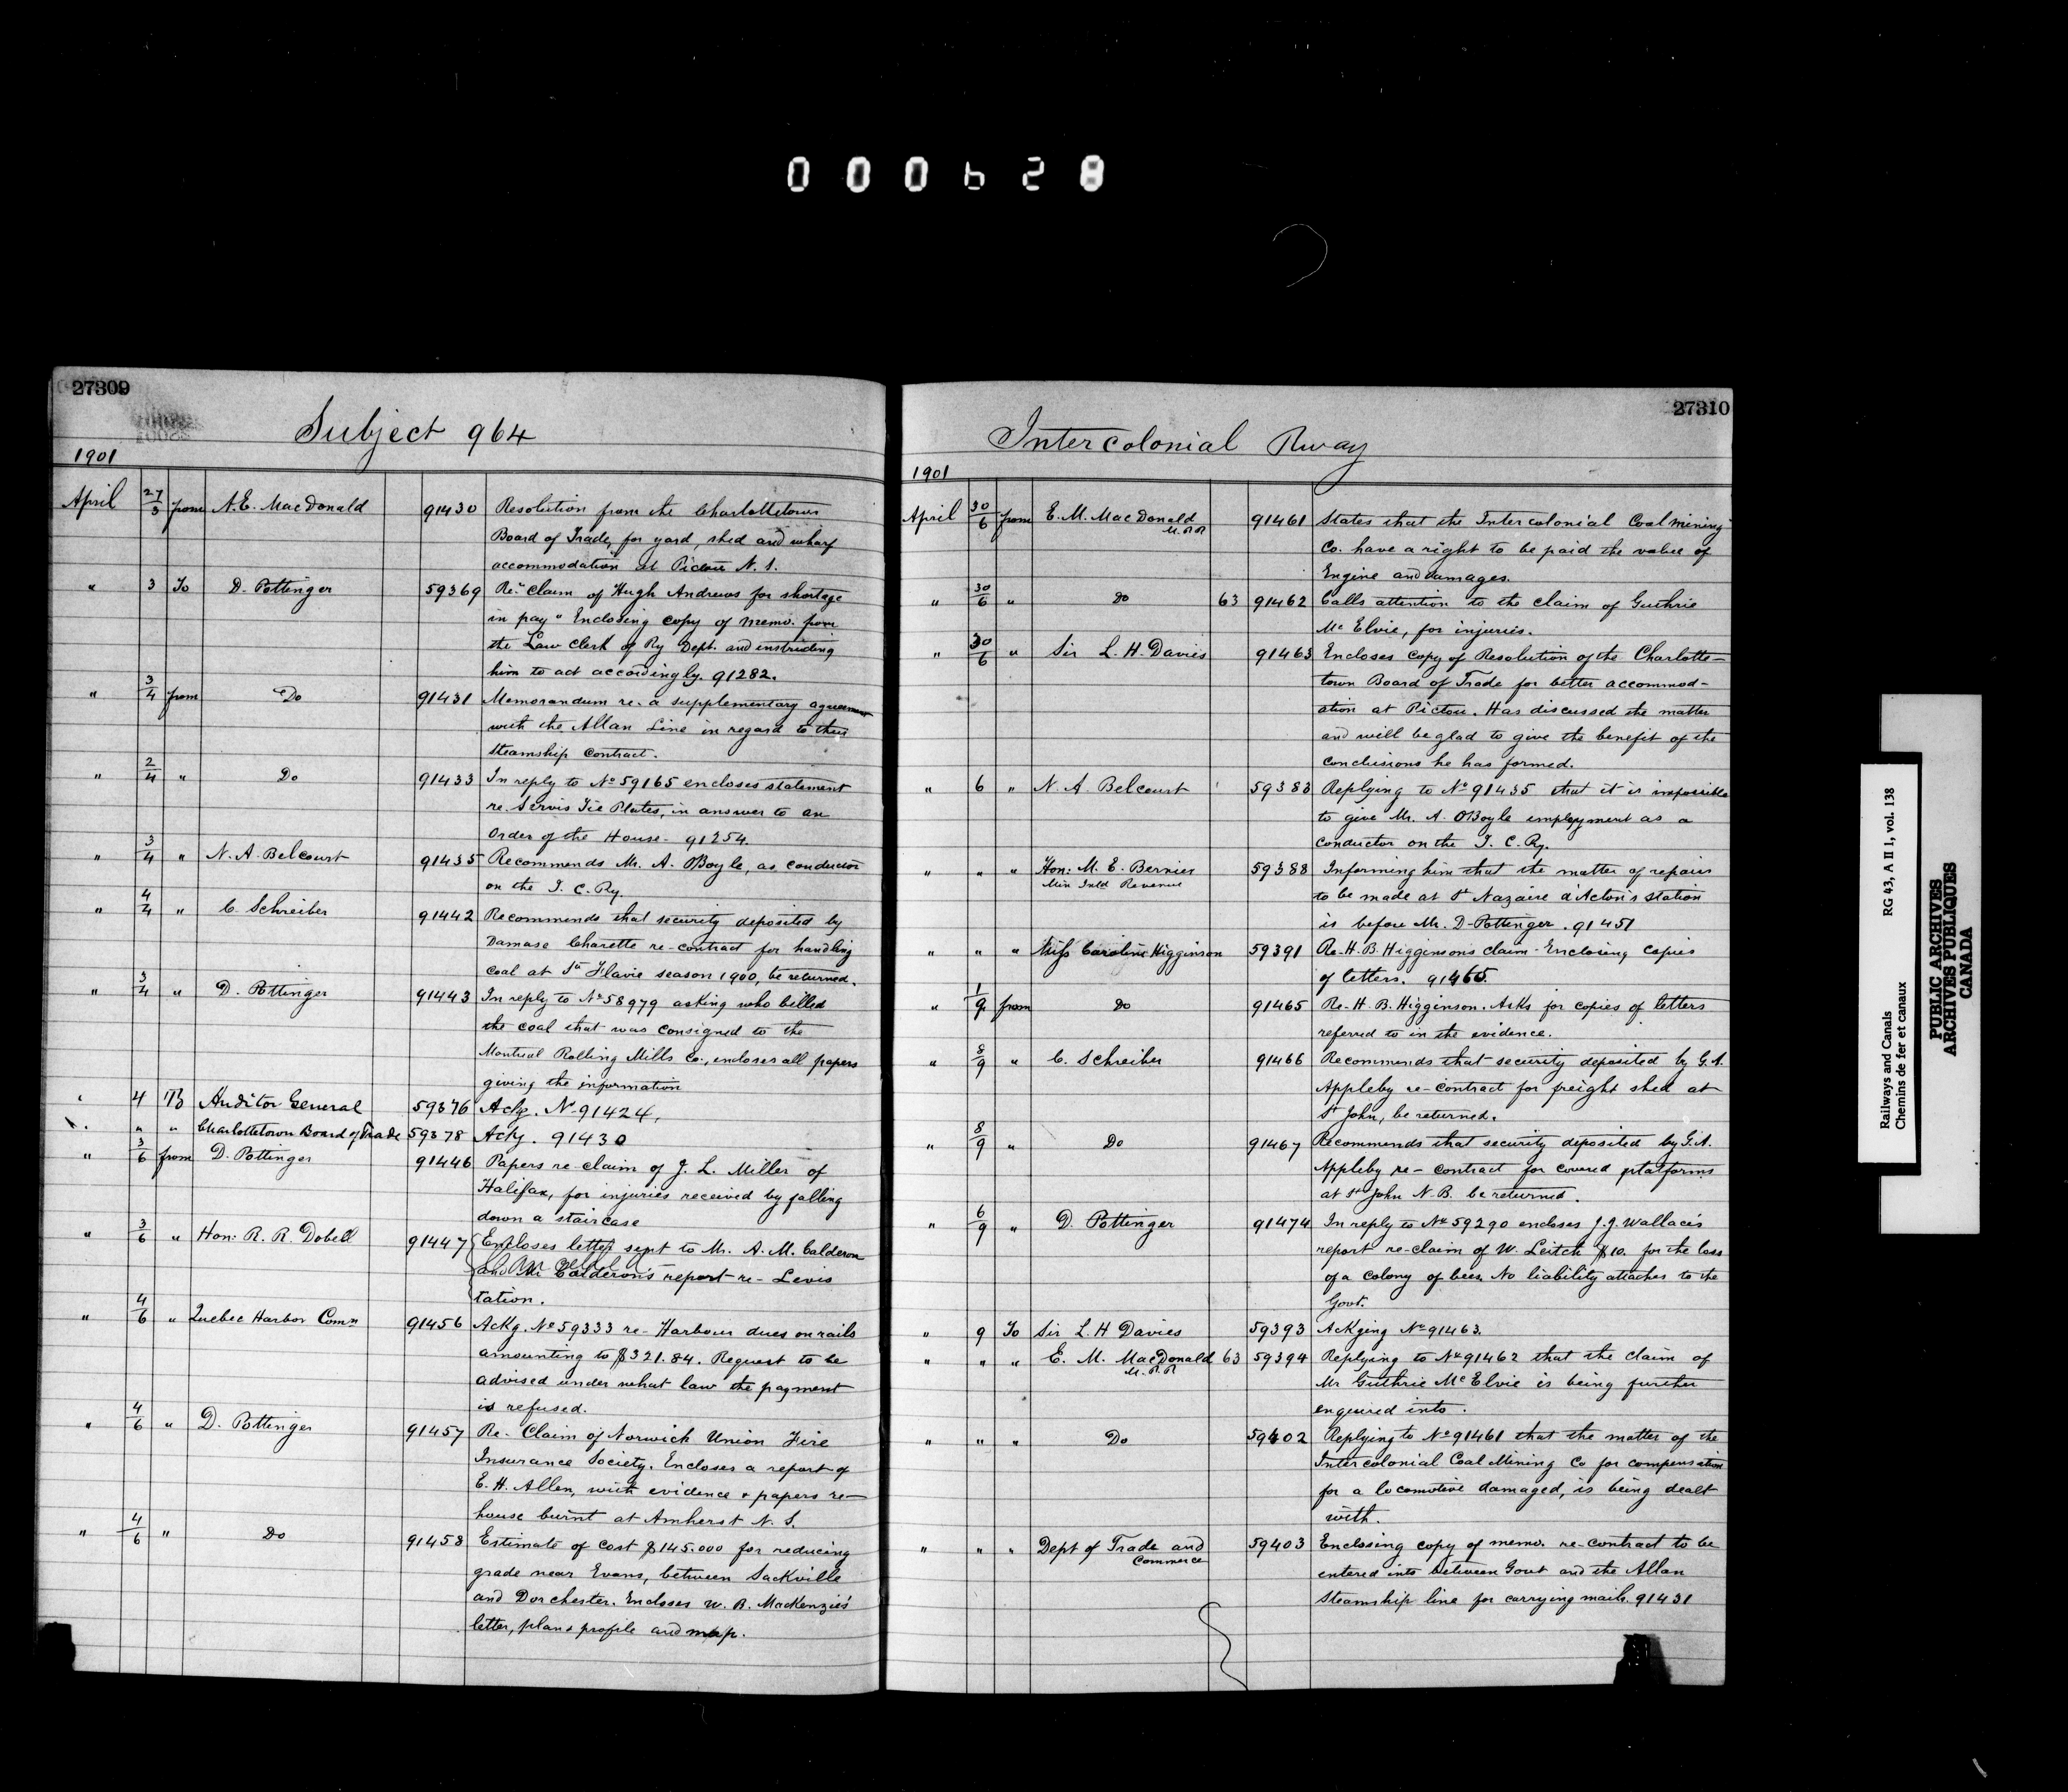 000628
27309
Subject 964
1901
April 27/3 from A.E. MacDonald 91430 Resolution from the Charlottetown
Board of Trade, for yard, shed and wharf
accommodation at Pictou N.S.
" 3 To D. Pottinger 59369 Re "Claim of Hugh Andrews for shortage
in pay" Enclosing copy of memo. from
the Law Clerk of Ry Dept. and instructing
him to act accordingly. 91282.
" 3/4 from Do 91431 Memorandum re- a supplementary agreement
with the Allan Line in regard to their
Steamship contract.
" 2/4 " Do 91433 In reply to No 59165 encloses statement
re. Servis Tie Plates, in answer to an
Order of the House - 91254.
" 3/4 " N.A. Belcourt 91435 Recommends Mr. A. O'Boyle, as conductor
on the I.C. Ry.
" 4/4 " C. Schreiber 91442 Recommends that security deposited by
Damase Charette re-contract for handling
coal at Ste Flavie season 1900, be returned.
" 3/4 " D. Pottinger 91443 In reply to No 58979 asking who billed
the coal that was consigned to the
Montreal Rolling Mills Co., encloses all papers
giving the information
" 4 To Auditor General 59376 Ackg. No 91424.
" " " Charlottetown Board of Trade 59378 Ackg. 91430
" 3/6 from D. Pottinger 91446 Papers re-claim of J. L. Miller of
Halifax, for injuries received by falling
down a staircase
" 3/6 " Hon: R. R. Dobell 91447 Encloses letter sent to Mr. A. M. Calderon
and Mr Calderon's report-re- Levis
tation.
" 4/6 " Quebec Harbor Comn 91456 Ackg. No 59333 re- Harbour dues on rails
amounting to $321.84. Request to be
advised under what law the payment
is refused.
" 4/6 " D. Pottinger 91457 Re- Claim of Norwich Union Fire
Insurance Society. Encloses a report of
E. H. Allen, with evidence & papers re-
house burnt at Amherst N.S.
" 4/6 " Do 91458 Estimate of cost $145.000 for reducing
grade near Evans, between Sackville
and Dorchester. Encloses W. B. MacKenzie's
letter, plan & profile and map.
27310
Intercolonial Rway
1901
April 30/6 from E. M. MacDonald 91461 States that the Intercolonial Coal Mining
M.P.P.
Co. have a right to be paid the value of
Engine and damages.
" 30/6 " Do 63 91462 Calls attention to the claim of Guthrie
Mc Elvie, for injuries.
" 30/6 " Sir L. H. Davies 91463 Encloses copy of Resolution of the Charlotte-
town Board of Trade for better accommod-
ation at Pictou. Has discussed the matter
and will be glad to give the benefit of the
conclusions he has formed.
" 6 " N. A. Belcourt 59383 Replying to No 91435 that it is impossible
to give Mr. A. O'Boyle employment as a
conductor on the I. C. Ry.
" " " Hon: M. E. Bernier 59388 Informing him that the matter of repairs
Min Inld Revenue
to be made at St Nazaire d'Acton's station
is before Mr. D. Pottinger. 91451
" " " Miss Caroline Higginson 59391 Re-H. B. Higginson's claim - Enclosing copies
of letters. 91465.
" 1/9 from Do 91465 Re- H. B. Higginson. Asks for copies of letters
referred to in the evidence.
" 8/9 " C. Schreiber 91466 Recommends that security deposited by G.A.
Appleby re-contract for freight shed at
St John, be returned.
" 8/9 " Do 91467 Recommends that security deposited by G.A.
Appleby re-contract for covered platforms
at St John N.B. be returned.
" 6/9 " D. Pottinger 91474 In reply to No 59290 encloses J. J. Wallace's
report re-claim of W. Leitch $10. for the loss
of a colony of bees. No liability attaches to the
Govt.
" 9 To Sir L. H Davies 59393 Ackging No 91463.
" " " E. M. MacDonald 63 59394 Replying to No 91462 that the claim of
M.P.P.
Mr Guthrie McElvie is being further
enquired into.
" " " Do 59402 Replying to No 91461 that the matter of the
Intercolonial Coal Mining Co for compensation
for a locomotive damaged, is being dealt
with.
" " " Dept of Trade and 59403 Enclosing copy of memo. re-contract to be
Commerce
entered into between Govt and the Allan
Steamship line for carrying mails. 91431
Railways and Canals RG 43, A II 1, vol. 138
Chemins de fer et canaux
PUBLIC ARCHIVES
ARCHIVES PUBLIQUES
CANADA